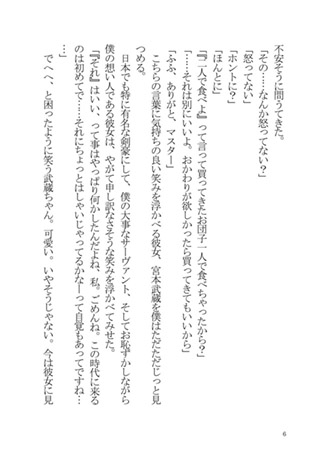 不安そうに問うてきた。
「その……なんか怒ってない？」
「怒ってない」
「ホントに？」
「ほんとに」
「『二人で食べよ』って言って買ってきたお団子一人で食べちゃったから？」
「……それは別にいいよ。おかわりが欲しかったら買ってきてもいいから」
「ふふ、ありがと、マスター」
こちらの言葉に気持ちの良い笑みを浮かべる彼女、宮本武蔵を僕はただただじっと見
つめる。
日本でも特に有名な剣豪にして、僕の大事なサーヴァント、そしてお恥ずかしながら
僕の想い人である彼女は、やがて申し訳なさそうな笑みを浮かべてみせた。
「『それ』はいい、って事はやっぱり何かしたんだよね、私。ごめんね。この時代に来る
のは初めてで……それにちょっとはしゃいじゃってるかなーって自覚もあってですね…
…」
でへへ、と困ったように笑う武蔵ちゃん。可愛い。いやそうじゃない。今は彼女に見
6